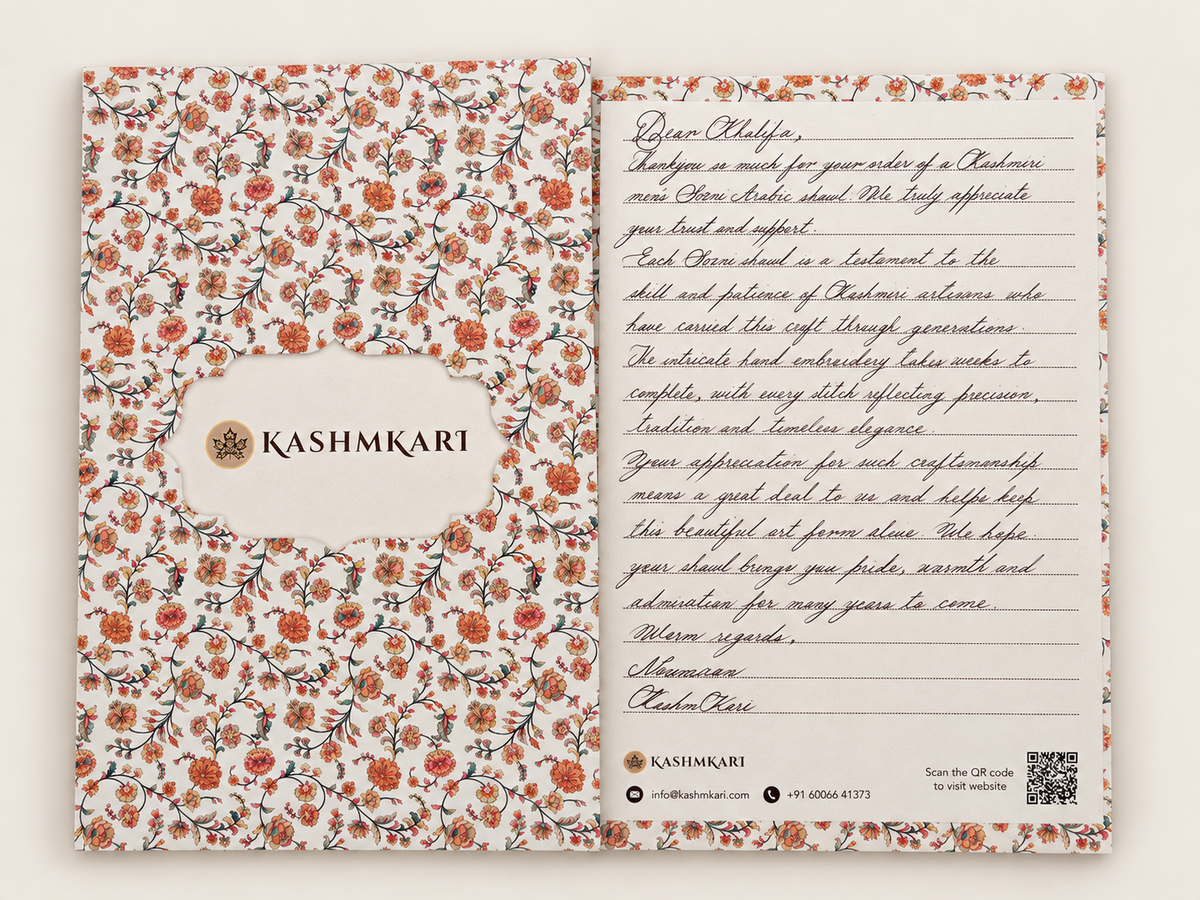 KASHMKARI
Dear Khalifa,
Thankyou so much for your order of a Kashmiri
men's Sozni Arabic shawl. We truly appreciate
your trust and support.
Each Sozni shawl is a testament to the
skill and patience of Kashmiri artisans who
have carried this craft through generations.
The intricate hand embroidery takes weeks to
complete, with every stitch reflecting precision,
tradition and timeless elegance.
Your appreciation for such craftsmanship
means a great deal to us and helps keep
this beautiful art form alive. We hope
your shawl brings you pride, warmth and
admiration for many years to come.
Warm regards,
Noumaan
KashmKari
KASHMKARI
info@kashmkari.com +91 60066 41373
Scan the QR code
to visit website